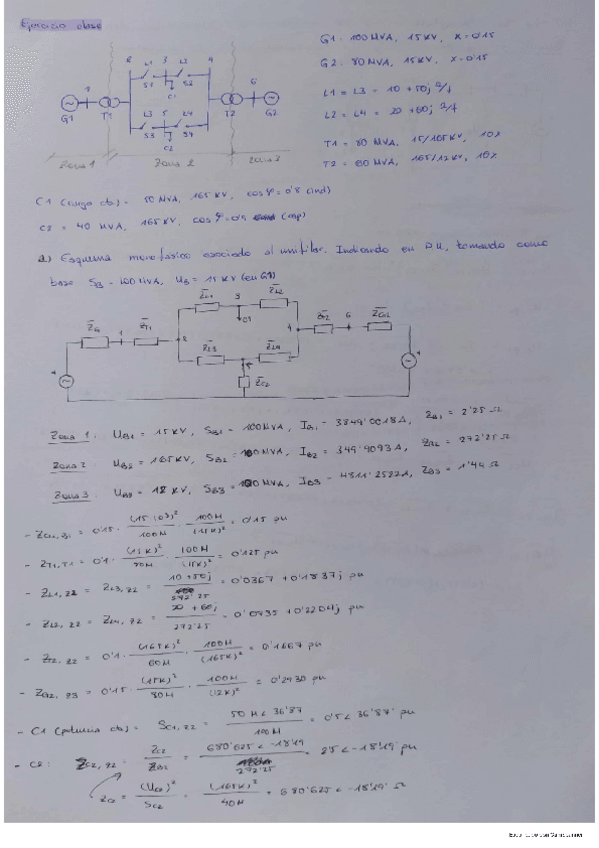 Ejercicio clase
G1: 100 MVA, 15 KV, X=0'15
G2: 80 MVA, 15 KV, X=0'15
L1 = L3 = 10 + 50j Ω/f
L2 = L4 = 20 + 60j Ω/f
T1 = 80 MVA, 15/165 KV, 10%
T2 = 60 MVA, 165/12 KV, 10%
2 L1 3 L3 4
S1 S2
C1
1 6
G1 T1 T2 G2
L3 5 L4
S3 S4
C2
Zona 1 Zona 2 Zona 3
C1 (carga cte) = 50 MVA, 165 KV, cos φ = 0'8 (ind)
C2 = 40 MVA, 165 KV, cos φ = 0'9 (cap)
a) Esquema monofásico asociado al unifilar. Indicando en P.U., tomando como
base SB = 100 MVA, UB = 15 KV (en G1)
ZL1 3 ZL2
ZG 1 ZT1 2 C1 4 ZT2 6 ZG2
ZL3 5 ZL4
ZC2
Zona 1: UB1 = 15 KV, SB1 = 100 MVA, IB1 = 3849'0018 A, ZB1 = 2'25 Ω
Zona 2 UB2 = 165 KV, SB2 = 100 MVA, IB2 = 349'9093 A, ZB2 = 272'25 Ω
Zona 3: UB3 = 12 KV, SB3 = 100 MVA, IB3 = 4811'2522 A, ZB3 = 1'44 Ω
- ZG1, Z1 = 0'15 · (15·10^3)² / 100M · 100M / (15K)² = 0'15 pu
- ZT1, Z1 = 0'1 · (15K)² / 80M · 100M / (15K)² = 0'125 pu
- ZL1, Z2 = ZL3, Z2 = 10 + 50j / 272'25 = 0'0367 + 0'1837j pu
- ZL2, Z2 = ZL4, Z2 = 20 + 60j / 272'25 = 0'0735 + 0'2204j pu
- ZT2, Z2 = 0'1 · (165K)² / 60M · 100M / (165K)² = 0'1667 pu
- ZG2, Z3 = 0'15 · (15K)² / 80M · 100M / (12K)² = 0'2930 pu
- C1 (potencia cte) = SC1, Z2 = 50M < 36'87 / 100M = 0'5 < 36'87° pu
- C2: ZC2, Z2 = ZC2 / ZB2 = 680'625 < -18'19 / 272'25 = 2'5 < -18'19° pu
ZC2 = (UC2)² / SC2 = (165K)² / 40M = 680'625 < -18'19° Ω